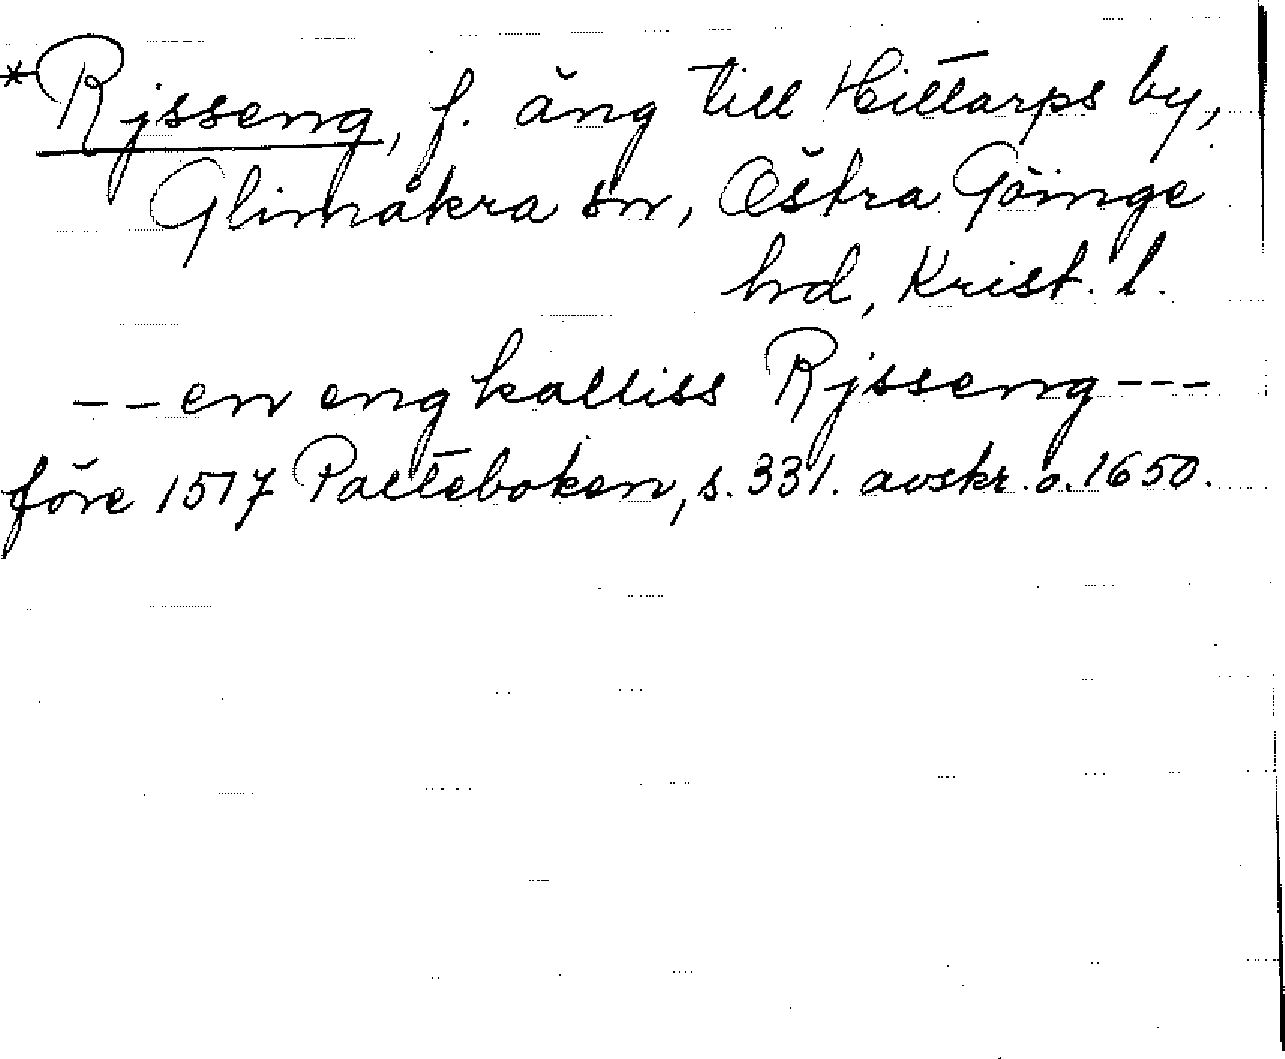 *Rjsseng, f. äng till Hittarps by,
Glimåkra sn, Östra Göinge
hrd, Krist. l.
-- en eng kalliss Rjsseng ---
före 1517 Palteboken, s. 331. avskr. o. 1650.